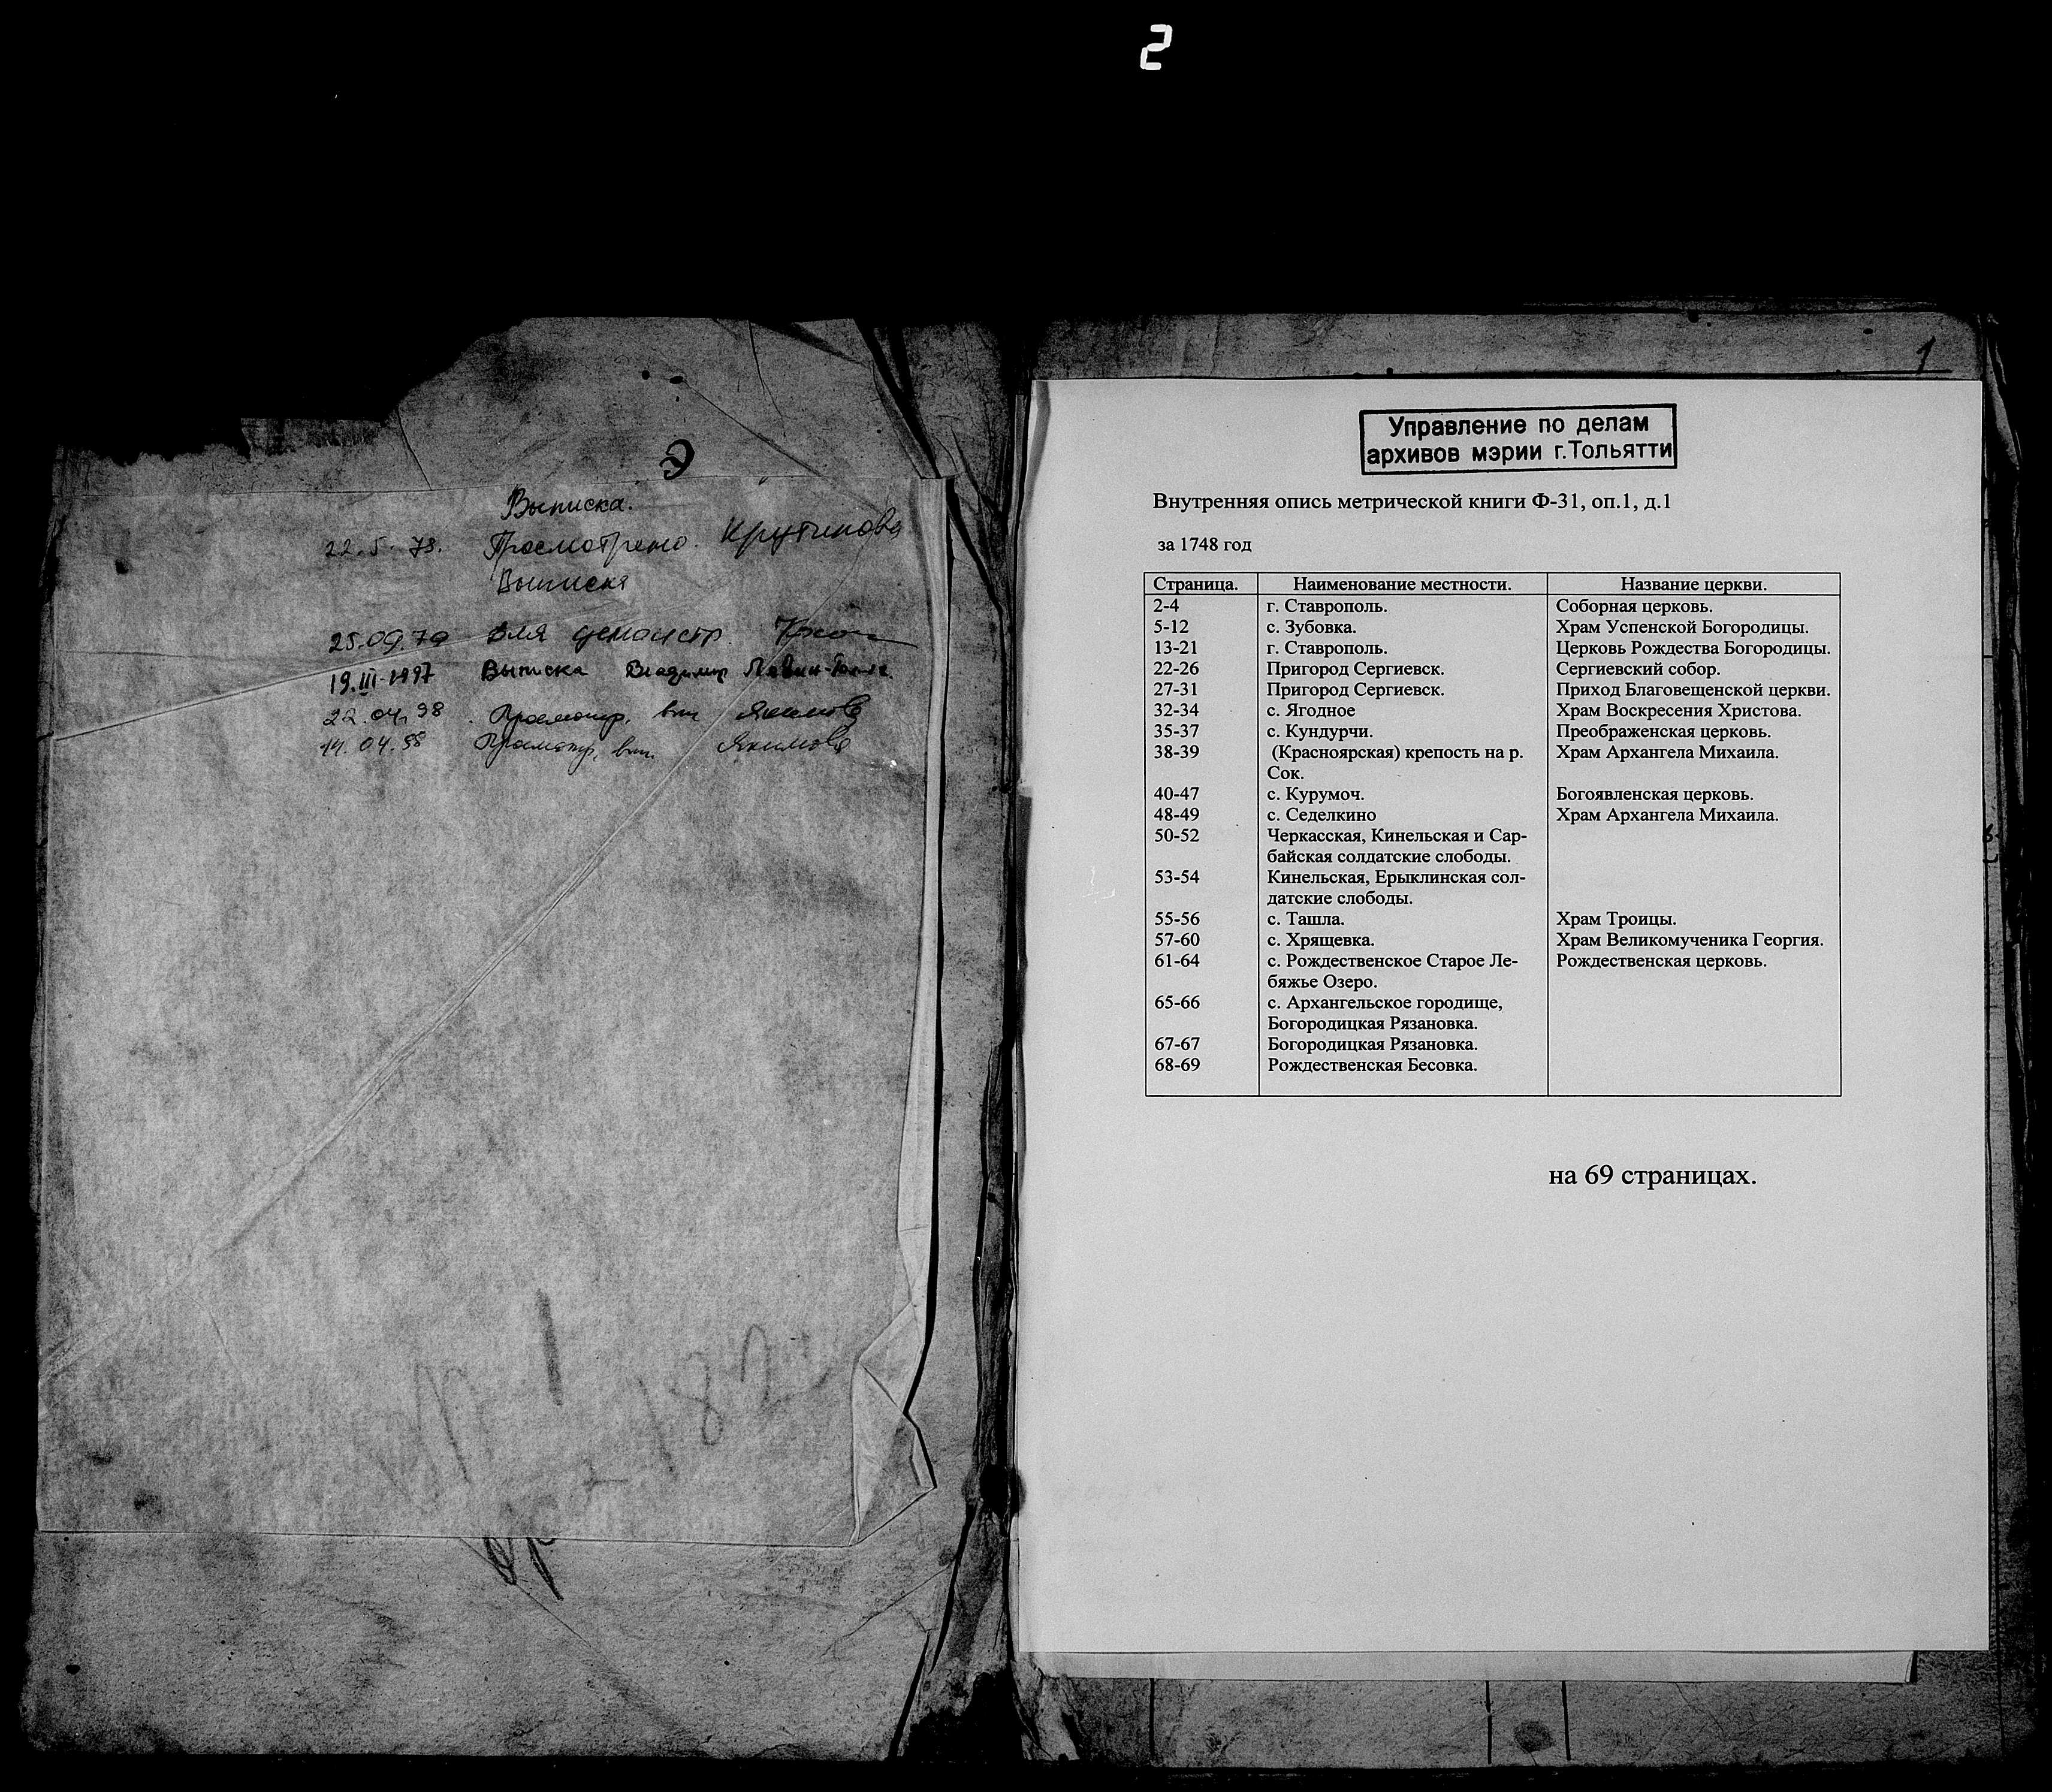 2
Выписка.
22.5.78. Просмотрено. Крутикова
Выписка
25.09.79 Для демонстр.
19.III.1997 Выписка Владимир
22.04.98. Просмотр, вып Якимова
14.04.98 Просмотр, вып. Якимова
№ 1
1
Управление по делам
архивов мэрии г.Тольятти
Внутренняя опись метрической книги Ф-31, оп.1, д.1
за 1748 год
Страница. Наименование местности. Название церкви.
2-4 г. Ставрополь. Соборная церковь.
5-12 с. Зубовка. Храм Успенской Богородицы.
13-21 г. Ставрополь. Церковь Рождества Богородицы.
22-26 Пригород Сергиевск. Сергиевский собор.
27-31 Пригород Сергиевск. Приход Благовещенской церкви.
32-34 с. Ягодное Храм Воскресения Христова.
35-37 с. Кундурчи. Преображенская церковь.
38-39 (Красноярская) крепость на р. Храм Архангела Михаила.
Сок.
40-47 с. Курумоч. Богоявленская церковь.
48-49 с. Седелкино Храм Архангела Михаила.
50-52 Черкасская, Кинельская и Сар-
байская солдатские слободы.
53-54 Кинельская, Ерыклинская сол-
датские слободы.
55-56 с. Ташла. Храм Троицы.
57-60 с. Хрящевка. Храм Великомученика Георгия.
61-64 с. Рождественское Старое Ле- Рождественская церковь.
бяжье Озеро.
65-66 с. Архангельское городище,
Богородицкая Рязановка.
67-67 Богородицкая Рязановка.
68-69 Рождественская Бесовка.
на 69 страницах.